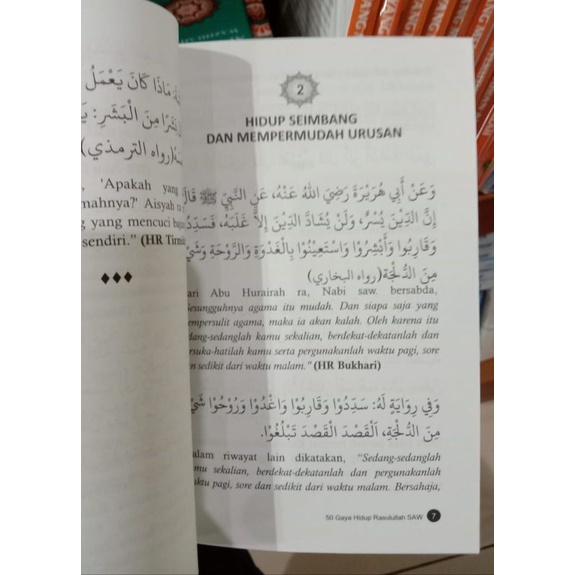 مَاذَا كَانَ يَعْمَلُ
بَشَرًا مِنَ الْبَشَرِ:
(رواه الترمذي)
'Apakah yang
Aisyah
yang mencuci
sendiri." (HR
2
HIDUP SEIMBANG
DAN MEMPERMUDAH URUSAN
وَعَنْ أَبِي هُرَيْرَةَ رَضِيَ اللهُ عَنْهُ، عَنِ النَّبِيِّ ﷺ قَالَ
إِنَّ الدِّيْنَ يُسْرٌ، وَلَنْ يُشَادَّ الدِّيْنَ إِلاَّ غَلَبَهُ، فَسَدِّدُ
وَقَارِبُوا وَأَبْشِرُوْا وَاسْتَعِيْنُوْا بِالْغَدْوَةِ وَالرَّوْحَةِ وَشَيْ
مِنَ الدُّلْجَةِ(رواه البخاري)
ari Abu Hurairah ra, Nabi saw bersabda,
esungguhnya agama itu mudah. Dan siapa saja yang
empersulit agama, maka ia akan kalah. Oleh karena itu
dang-sedanglah kamu sekalian, berdekat-dekatanlah dan
rsuka-hatilah kamu serta pergunakanlah waktu pagi, sore
n sedikit dari waktu malam." (HR Bukhari)
وَفِي رِوَايَةٍ لَهُ: سَدِّدُوْا وَقَارِبُوْا وَاغْدُوْا وَرُوْحُوْا شَيْ
مِنَ الدُّلْجَةِ، اَلْقَصْدَ الْقَصْدَ تَبْلُغُوْا.
alam riwayat lain dikatakan, "Sedang-sedanglah
mu sekalian, berdekat-dekatanlah dan pergunakanlah
aktu pagi, sore dan sedikit dari waktu malam. Bersahaja,
50 Gaya Hidup Rasulullah SAW 7